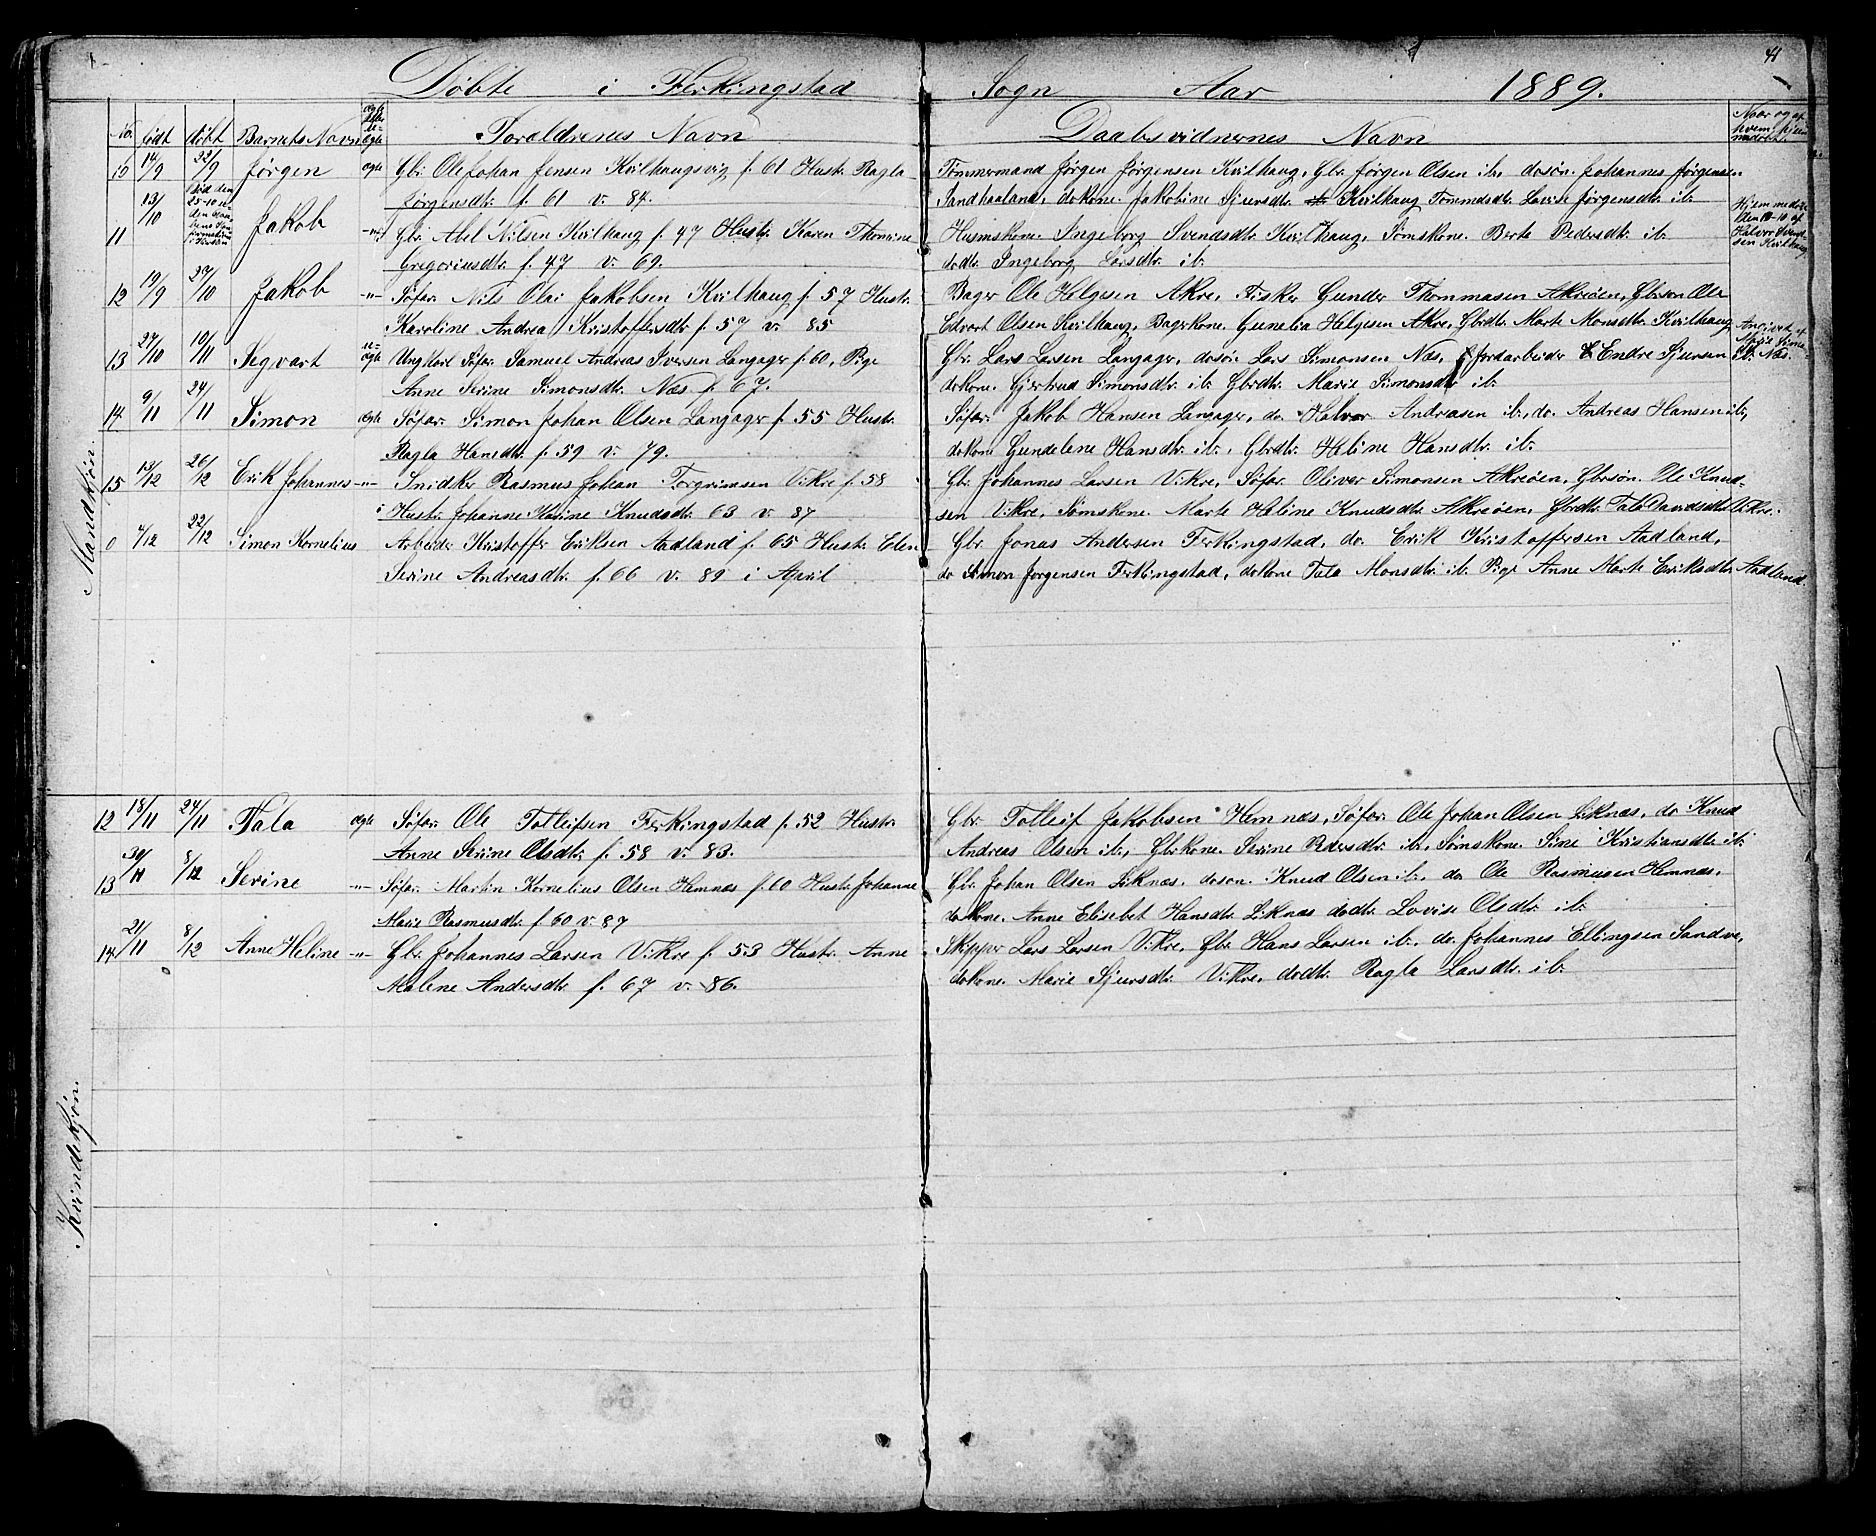 41
Döbte i Ferkingstad Sogn Aar 1889.
No. födt döbt Barnets Navn ægte eller u-ægte Foraldrenes Navn Daabsvidnernes Navn Naar og af hvem hjemmedöbt.
Mandkjön.
10 14/9 22/9 Jörgen ægte Gbr. Ole Johan Jensen Kvilhaugsvig f. 61 Hustr. Ragla Tömmermand Jörgen Jörgensen Kvilhaug, Gbr. Jörgen Olsen ib., dosön. Johannes Jörgensen
Jörgensdtr. f. 61 v. 84. Sandhaaland, dokone. Jakobine Sjursdtr. Kvilhaug Tömmdsdtr. Lovise Jörgensdtr. ib.
11 13/10 Jakob -"- Gbr. Abel Nilsen Kvilhaug f. 47 Hustr. Karen Thomine Husmskone. Ingeborg Svendsdtr. Kvilhaug, Sömskone. Berte Pedersdtr. ib. Hjemmedöbt den 18-10 af Halvor Svendsen Kvilhaug
Gregoriusdtr. f. 47 v. 69. dodtr. Ingeborg Larsdtr. ib.
12 19/9 27/10 Jakob -"- Söfar. Nils Olai Jakobsen Kvilhaug f. 57 Hustr. Bager Ole Helgesen Akre, Fisker Gunder Thommasen Akreöen, Gbrsön Ole
Karoline Andrea Kristoffersdtr. f. 57 v. 85 Edvart Olsen Kvilhaug, Bagrkone. Gunelia Helgesen Akre, Gbrdtr. Marte Monsdtr. Kvilhaug
13 27/10 10/11 Segvart u-ægte Ungkarl Söfar. Samuel Andreas Iversen Langager f. 60, Pige Gbr. Lars Larsen Langager, dosön. Lars Simonsen Næs, Jordarbeider Endre Sjursen
Anne Serine Simonsdtr. Næs f. 67. dokone. Gjertrud Simonsdtr. ib. Gbrdtr. Marie Simonsdtr. ib.
14 9/11 24/11 Simon ægte Söfar. Simon Johan Olsen Langager f. 55 Hustr. Söfar. Jakob Hansen Langager, do. Halvor Andreasen ib., do. Andreas Hansen ib.,
Ragla Hansdtr. f. 59 v. 79. dokone Gundelene Hansdtr. ib., Gbrdtr. Heline Hansdtr. ib.
15 13/12 26/12 Erik Johannes -"- Snidker Rasmus Johan Torgrimsen Vikre f. 58 Gbr. Johannes Larsen Vikre, Söfar. Oliver Simonsen Akreöen, Gbrsön. Ole Knud-
Hustr. Johanne Karine Knudsdtr. 63 v. 87 sen Vikre, Sömskone. Marte Heline Knudsdtr. Akreöen, Gbrdtr. Tala Davidsdtr. Vikre.
0 4/12 22/12 Simon Kornelius Arbeider Kristoffer Eriksen Aadland f. 65 Hustr. Elen Gbr. Jonas Andersen Ferkingstad, do. Erik Kristoffersen Aadland,
Serine Andreasdtr. f. 66 v. 89 i April do Simon Jörgensen Ferkingstad, dokone Tala Monsdtr. ib. Pige Anne Marte Eriksdtr. Aadland.
Kvindekjön.
12 18/11 24/11 Tala ægte Söfar. Ole Tolleifsen Ferkingstad f. 52 Hustr. Gbr. Tolleif Jakobsen Hemnæs, Söfar. Ole Johan Olsen Liknæs, do Knud
Anne Serine Olsdtr. f. 58 v. 83. Andreas Olsen ib., Gbrkone. Serine Pedersdtr. ib., Sömskone. Sine Kristiansdtr. ib.
13 30/11 8/12 Serine -"- Söfar. Martin Kornelius Olsen Hemnæs f. 60 Hustr. Johanne Gbr. Johan Olsen Liknæs, dosön. Knud Olsen ib., do Ole Rasmusen Hemnæs,
Marie Rasmusdtr. f. 60 v. 87 dokone. Anne Elisebet Hansdtr. Liknæs dodtr. Lovise Olsdtr. ib.
14 21/11 8/12 Anne Heline -"- Gbr. Johannes Larsen Vikre f. 53 Hustr. Anne Skipper Lars Larsen Vikre, Gbr. Hans Larsen ib., do. Johannes Ellingsen Sandve,
Malene Andersdtr. f. 67 v. 86. dokone. Marie Sjursdtr. Vikre, dodtr. Ragla Larsdtr. ib.